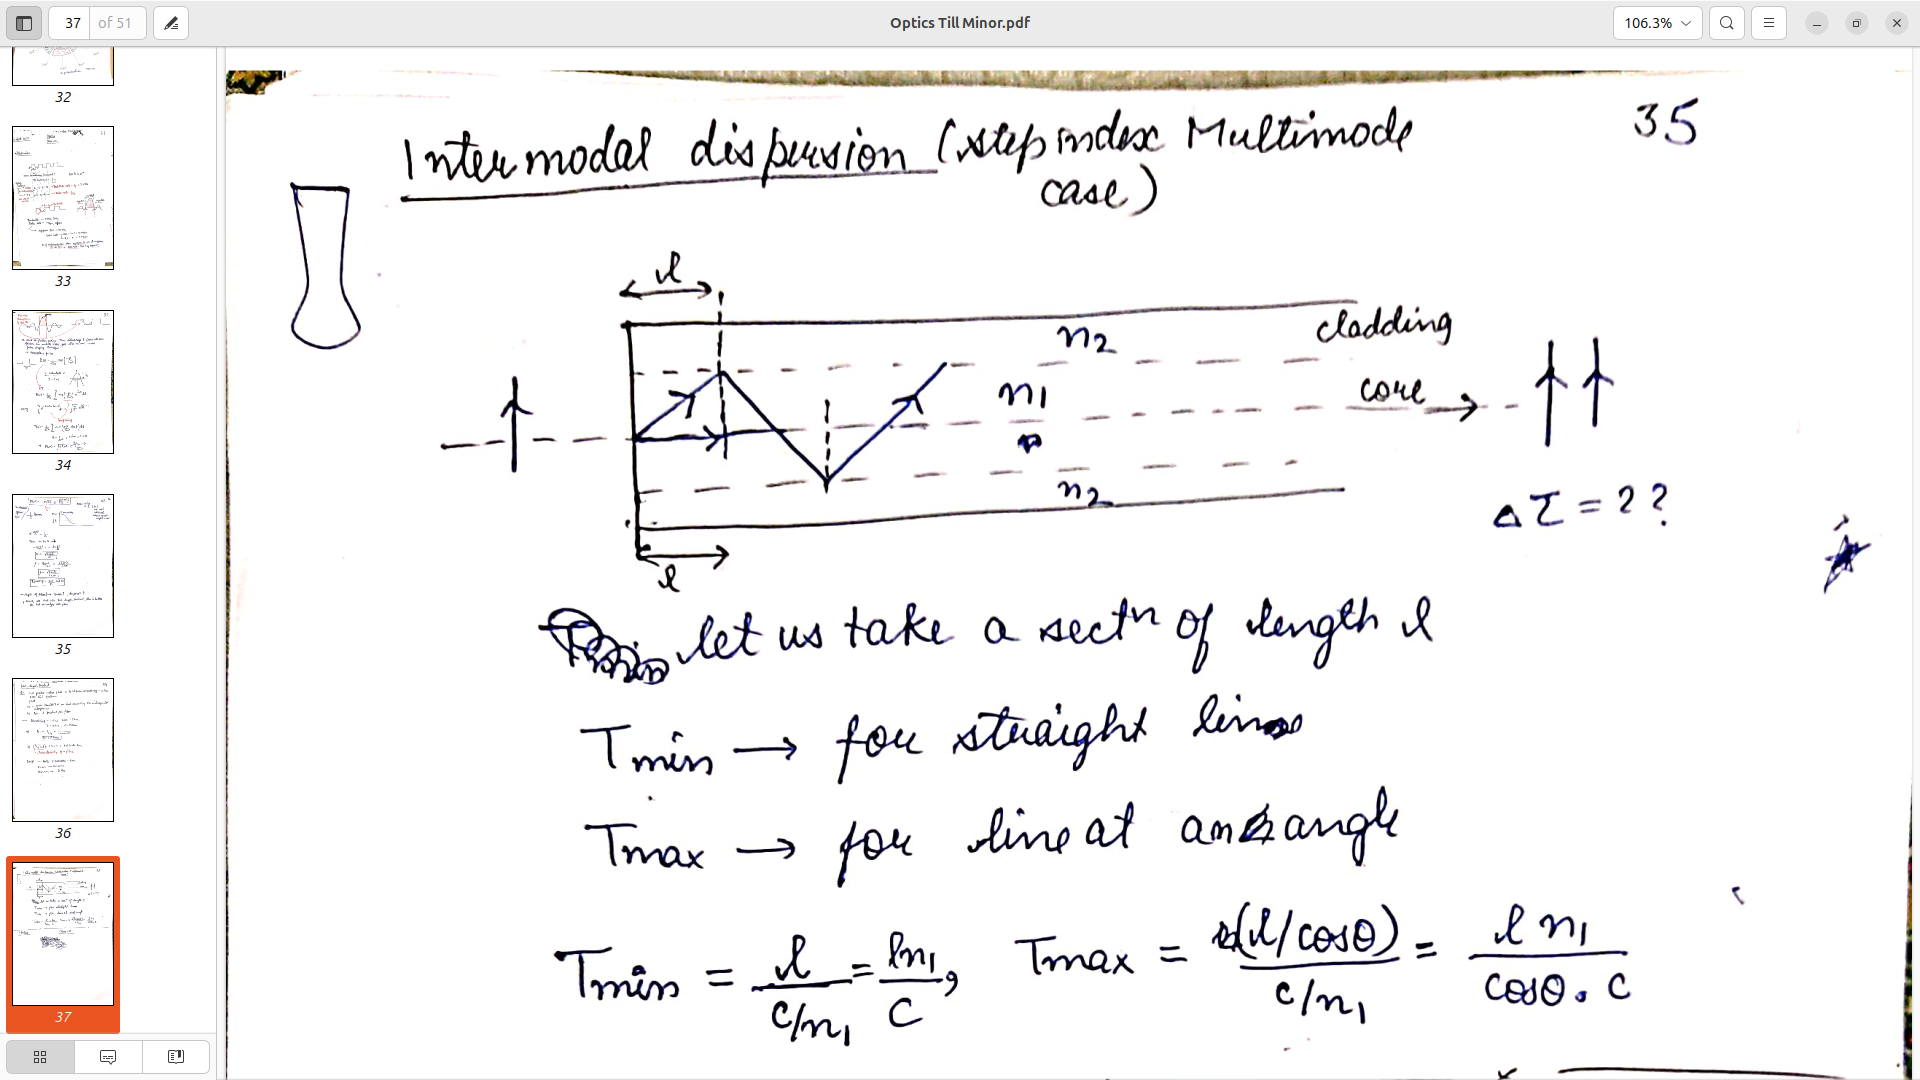 37 of 51
Optics Till Minor.pdf
106.3%
32
33
34
35
36
37
35
Intermodal dispersion (step index Multimode
case)
l
n2
cladding
n1
core
n2
Δτ = ??
l
let us take a sectn of length l
Tmin → for straight line
Tmax → for line at an angle
Tmin = l / (c/n1) = ln1 / C, Tmax = (l/cosθ) / (c/n1) = l n1 / (cosθ . C)